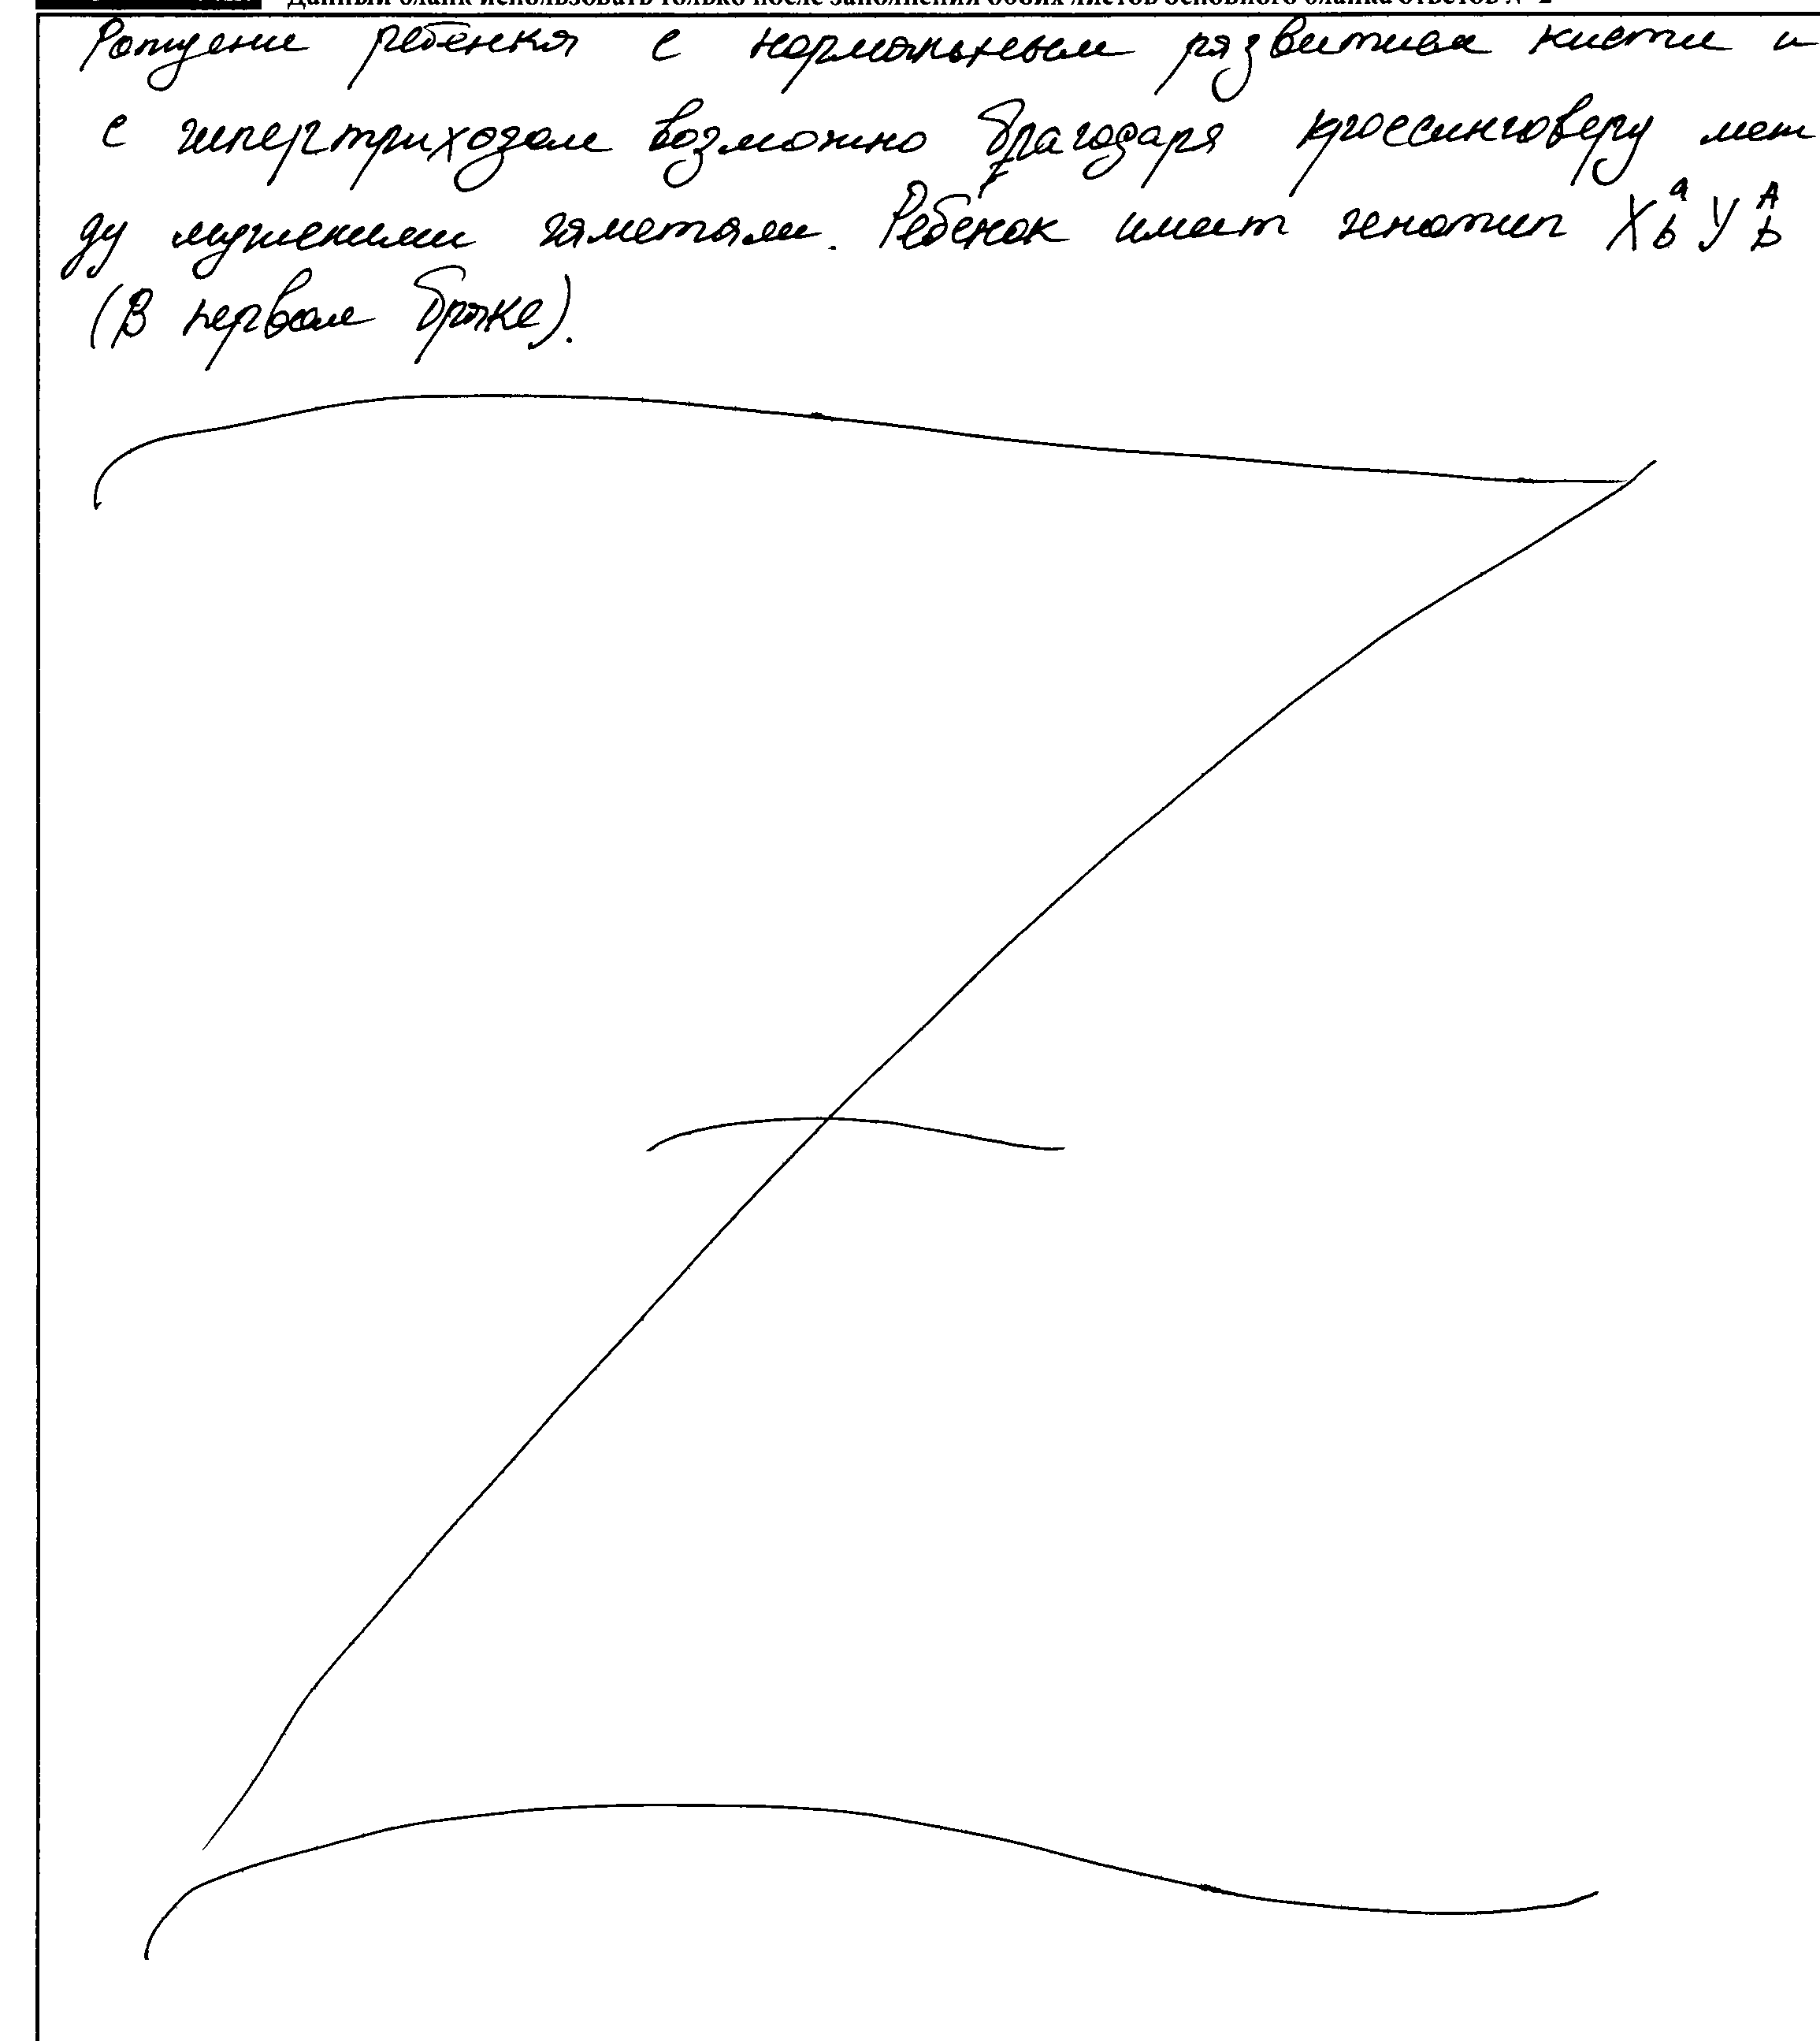 Данный бланк использовать только после заполнения обоих листов основного бланка ответов № 2
Рождение ребёнка с нормальным развитием кисти и
с гипертрихозом возможно благодаря кроссинговеру меж
ду мужскими гаметами. Ребёнок имеет генотип X^a_b У^A_b
(В первом браке).